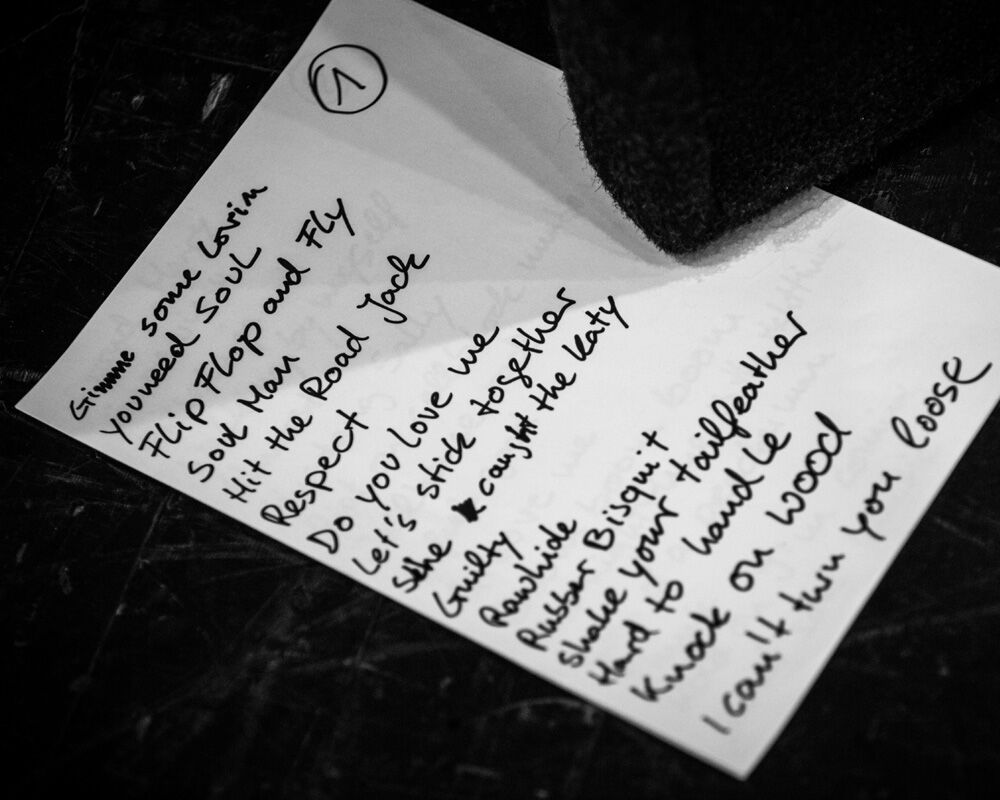 1
Gimme some Lovin
you need SOUL
Flip Flop and Fly
Soul Man
Hit the Road Jack
Respect
Do you love me
Let's stick together
She caught the Katy
Guilty
Rawhide
Rubber Bisquit
shake your tailfeather
Hard to handle
Knock on wood
I can't turn you loose